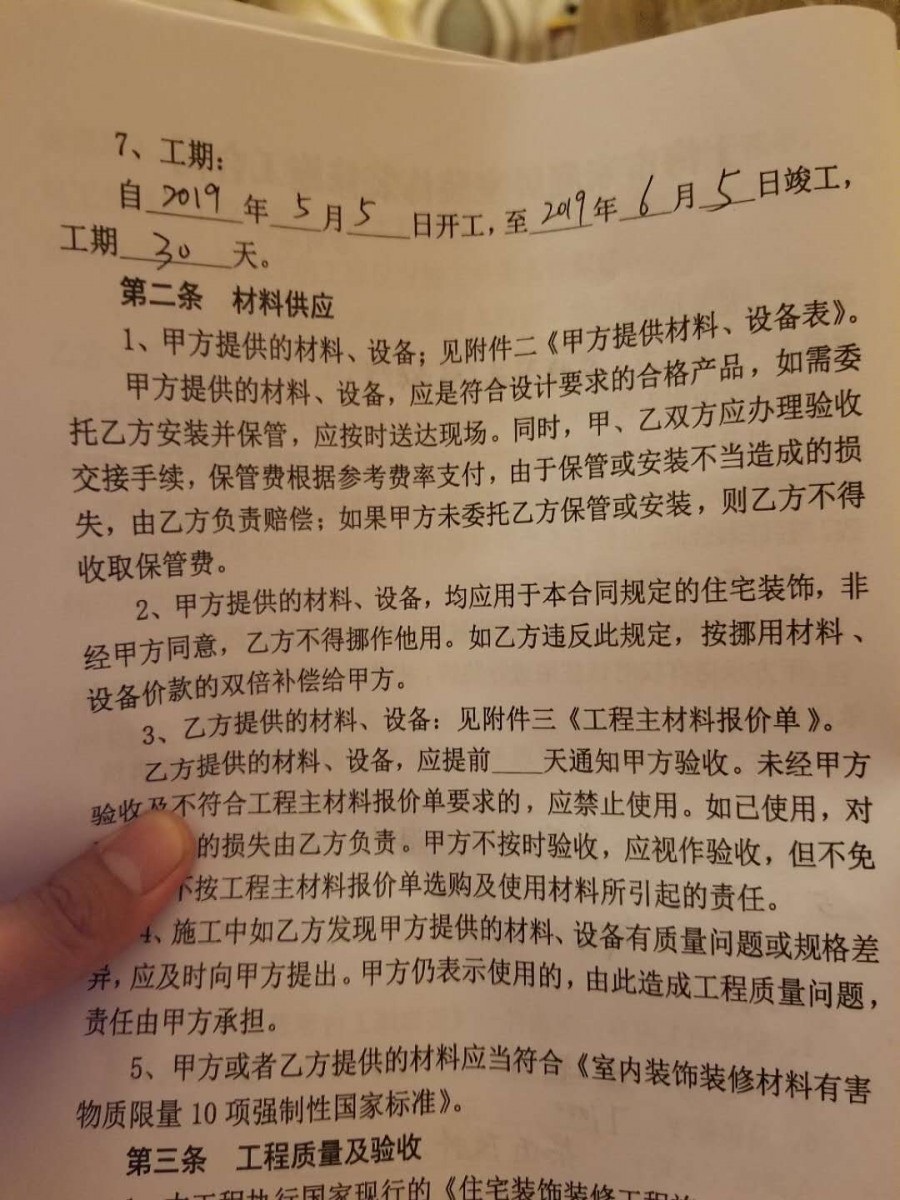 7、工期：
自 2019 年 5 月 5 日开工，至 2019 年 6 月 5 日竣工，
工期 30 天。
第二条 材料供应
1、甲方提供的材料、设备；见附件二《甲方提供材料、设备表》。
甲方提供的材料、设备，应是符合设计要求的合格产品，如需委
托乙方安装并保管，应按时送达现场。同时，甲、乙双方应办理验收
交接手续，保管费根据参考费率支付，由于保管或安装不当造成的损
失，由乙方负责赔偿；如果甲方未委托乙方保管或安装，则乙方不得
收取保管费。
2、甲方提供的材料、设备，均应用于本合同规定的住宅装饰，非
经甲方同意，乙方不得挪作他用。如乙方违反此规定，按挪用材料、
设备价款的双倍补偿给甲方。
3、乙方提供的材料、设备：见附件三《工程主材料报价单》。
乙方提供的材料、设备，应提前___天通知甲方验收。未经甲方
验收及不符合工程主材料报价单要求的，应禁止使用。如已使用，对
的损失由乙方负责。甲方不按时验收，应视作验收，但不免
不按工程主材料报价单选购及使用材料所引起的责任。
4、施工中如乙方发现甲方提供的材料、设备有质量问题或规格差
异，应及时向甲方提出。甲方仍表示使用的，由此造成工程质量问题，
责任由甲方承担。
5、甲方或者乙方提供的材料应当符合《室内装饰装修材料有害
物质限量 10 项强制性国家标准》。
第三条 工程质量及验收
1、本工程执行国家现行的《住宅装饰装修工程施